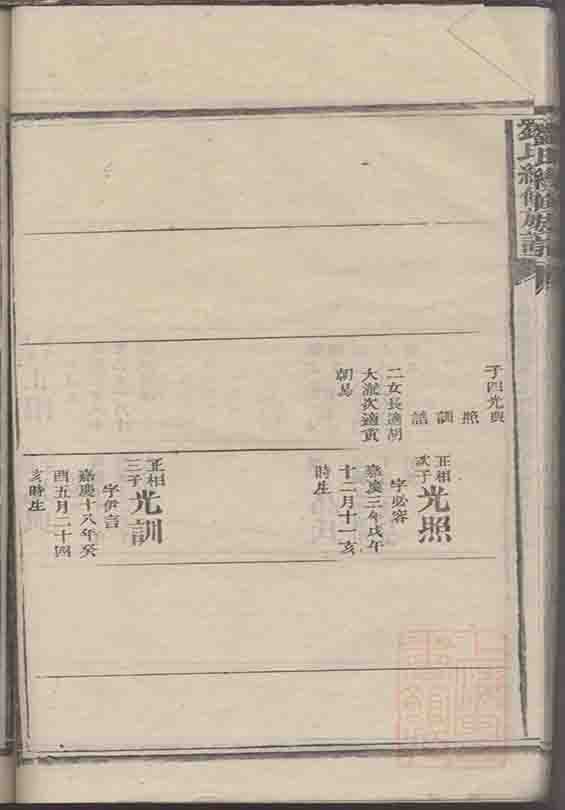 子四光典
照
訓
誥
二女長適胡
大淑次適黃
朝易
正相
次子
光照
字必容
嘉慶三年戊午
十二月十一亥
時生
正相
三子
光訓
字伊言
嘉慶十八年癸
酉五月二十四
亥時生